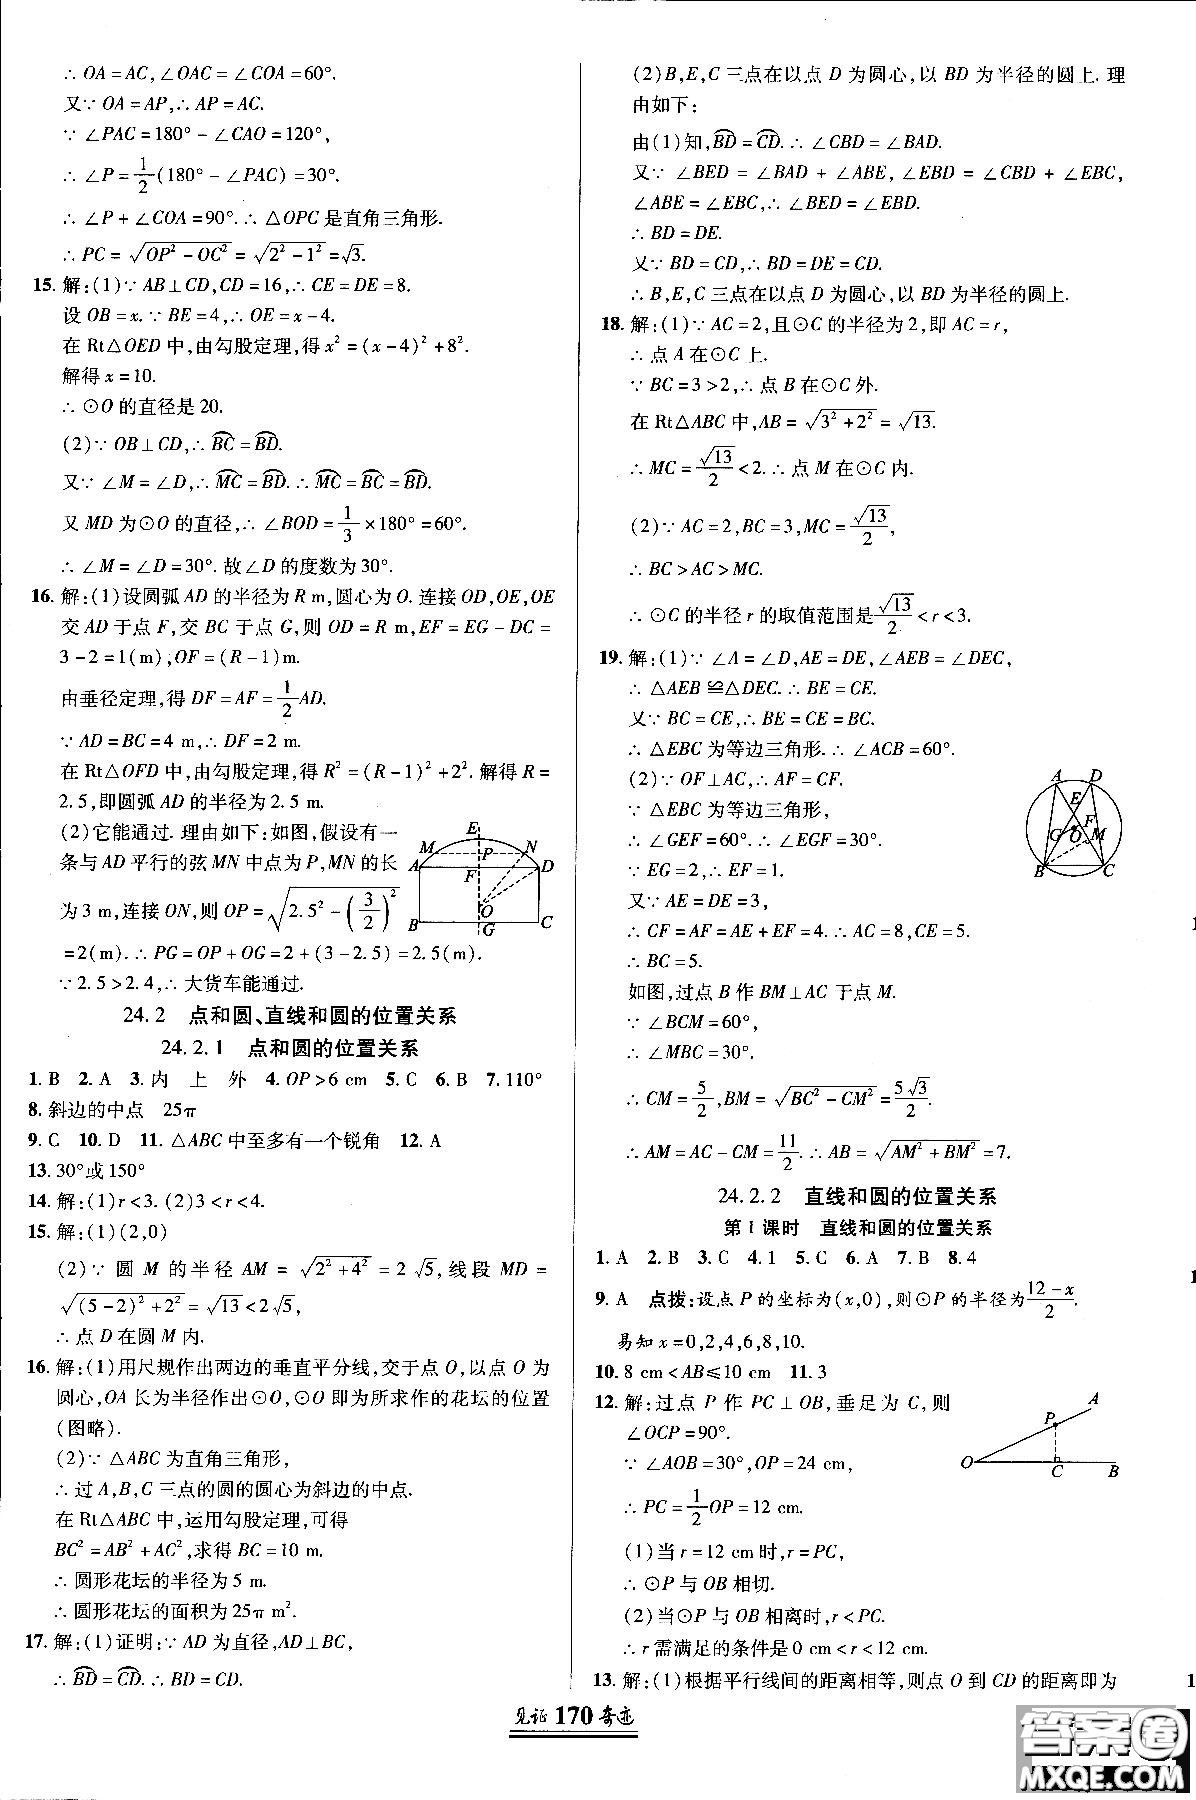 ∴ OA=AC,∠OAC=∠COA=60°.
又∵ OA=AP,∴ AP=AC.
∵ ∠PAC=180°-∠CAO=120°,
∴ ∠P=1/2(180°-∠PAC)=30°.
∴ ∠P+∠COA=90°.∴ △OPC 是直角三角形.
∴ PC=√(OP²-OC²)=√(2²-1²)=√3.
15. 解:(1)∵ AB⊥CD,CD=16,∴ CE=DE=8.
设 OB=x.∵ BE=4,∴ OE=x-4.
在 Rt△OED 中,由勾股定理,得 x²=(x-4)²+8².
解得 x=10.
∴ ⊙O 的直径是 20.
(2)∵ OB⊥CD,∴ B͡C=B͡D.
又∵ ∠M=∠D,∴ M͡C=B͡D.∴ M͡C=B͡C=B͡D.
又 MD 为⊙O 的直径,∴ ∠BOD=1/3×180°=60°.
∴ ∠M=∠D=30°.故∠D 的度数为 30°.
16. 解:(1)设圆弧 AD 的半径为 R m,圆心为 O.连接 OD,OE,OE
交 AD 于点 F,交 BC 于点 G,则 OD=R m,EF=EG-DC=
3-2=1(m),OF=(R-1)m.
由垂径定理,得 DF=AF=1/2AD.
∵ AD=BC=4 m,∴ DF=2 m.
在 Rt△OFD 中,由勾股定理,得 R²=(R-1)²+2².解得 R=
2.5,即圆弧 AD 的半径为 2.5 m.
(2)它能通过.理由如下:如图,假设有一
条与 AD 平行的弦 MN 中点为 P,MN 的长
为 3 m,连接 ON,则 OP=√(2.5²-(3/2)²)
=2(m).∴ PG=OP+OG=2+(3-2.5)=2.5(m).
∵ 2.5>2.4,∴ 大货车能通过.
E
M P N
A F D
O
B G C
24.2 点和圆、直线和圆的位置关系
24.2.1 点和圆的位置关系
1. B 2. A 3. 内 上 外 4. OP>6 cm 5. C 6. B 7. 110°
8. 斜边的中点 25π
9. C 10. D 11. △ABC 中至多有一个锐角 12. A
13. 30°或 150°
14. 解:(1)r<3.(2)3<r<4.
15. 解:(1)(2,0)
(2)∵ 圆 M 的半径 AM=√(2²+4²)=2√5,线段 MD=
√((5-2)²+2²)=√13<2√5,
∴ 点 D 在圆 M 内.
16. 解:(1)用尺规作出两边的垂直平分线,交于点 O,以点 O 为
圆心,OA 长为半径作出⊙O,⊙O 即为所求作的花坛的位置
(图略).
(2)∵ △ABC 为直角三角形,
∴ 过 A,B,C 三点的圆的圆心为斜边的中点.
在 Rt△ABC 中,运用勾股定理,可得
BC²=AB²+AC²,求得 BC=10 m.
∴ 圆形花坛的半径为 5 m.
∴ 圆形花坛的面积为 25π m².
17. 解:(1)证明:∵ AD 为直径,AD⊥BC,
∴ B͡D=C͡D.∴ BD=CD.
(2)B,E,C 三点在以点 D 为圆心,以 BD 为半径的圆上.理
由如下:
由(1)知,B͡D=C͡D.∴ ∠CBD=∠BAD.
又∵ ∠BED=∠BAD+∠ABE,∠EBD=∠CBD+∠EBC,
∠ABE=∠EBC,∴ ∠BED=∠EBD.
∴ BD=DE.
又∵ BD=CD,∴ BD=DE=CD.
∴ B,E,C 三点在以点 D 为圆心,以 BD 为半径的圆上.
18. 解:(1)∵ AC=2,且⊙C 的半径为 2,即 AC=r,
∴ 点 A 在⊙C 上.
∵ BC=3>2,∴ 点 B 在⊙C 外.
在 Rt△ABC 中,AB=√(3²+2²)=√13.
∴ MC=√13/2<2.∴ 点 M 在⊙C 内.
(2)∵ AC=2,BC=3,MC=√13/2,
∴ BC>AC>MC.
∴ ⊙C 的半径 r 的取值范围是√13/2<r<3.
19. 解:(1)∵ ∠A=∠D,AE=DE,∠AEB=∠DEC,
∴ △AEB≌△DEC.∴ BE=CE.
又∵ BC=CE,∴ BE=CE=BC.
∴ △EBC 为等边三角形.∴ ∠ACB=60°.
(2)∵ OF⊥AC,∴ AF=CF.
∵ △EBC 为等边三角形,
∴ ∠GEF=60°.∴ ∠EGF=30°.
∵ EG=2,∴ EF=1.
又∵ AE=DE=3,
∴ CF=AF=AE+EF=4.∴ AC=8,CE=5.
∴ BC=5.
如图,过点 B 作 BM⊥AC 于点 M.
∵ ∠BCM=60°,
∴ ∠MBC=30°.
∴ CM=5/2,BM=√(BC²-CM²)=5√3/2.
∴ AM=AC-CM=11/2.∴ AB=√(AM²+BM²)=7.
A D
E
F
G O M
B C
24.2.2 直线和圆的位置关系
第 1 课时 直线和圆的位置关系
1. A 2. B 3. C 4. 1 5. C 6. A 7. B 8. 4
9. A 点拨:设点 P 的坐标为(x,0),则⊙P 的半径为(12-x)/2.
易知 x=0,2,4,6,8,10.
10. 8 cm<AB≤10 cm 11. 3
12. 解:过点 P 作 PC⊥OB,垂足为 C,则
∠OCP=90°.
∵ ∠AOB=30°,OP=24 cm,
∴ PC=1/2OP=12 cm.
(1)当 r=12 cm 时,r=PC,
∴ ⊙P 与 OB 相切.
(2)当⊙P 与 OB 相离时,r<PC.
∴ r 需满足的条件是 0 cm<r<12 cm.
A
P
O C B
13. 解:(1)根据平行线间的距离相等,则点 O 到 CD 的距离即为
见证 170 奇迹
答案圈
MXQE.COM